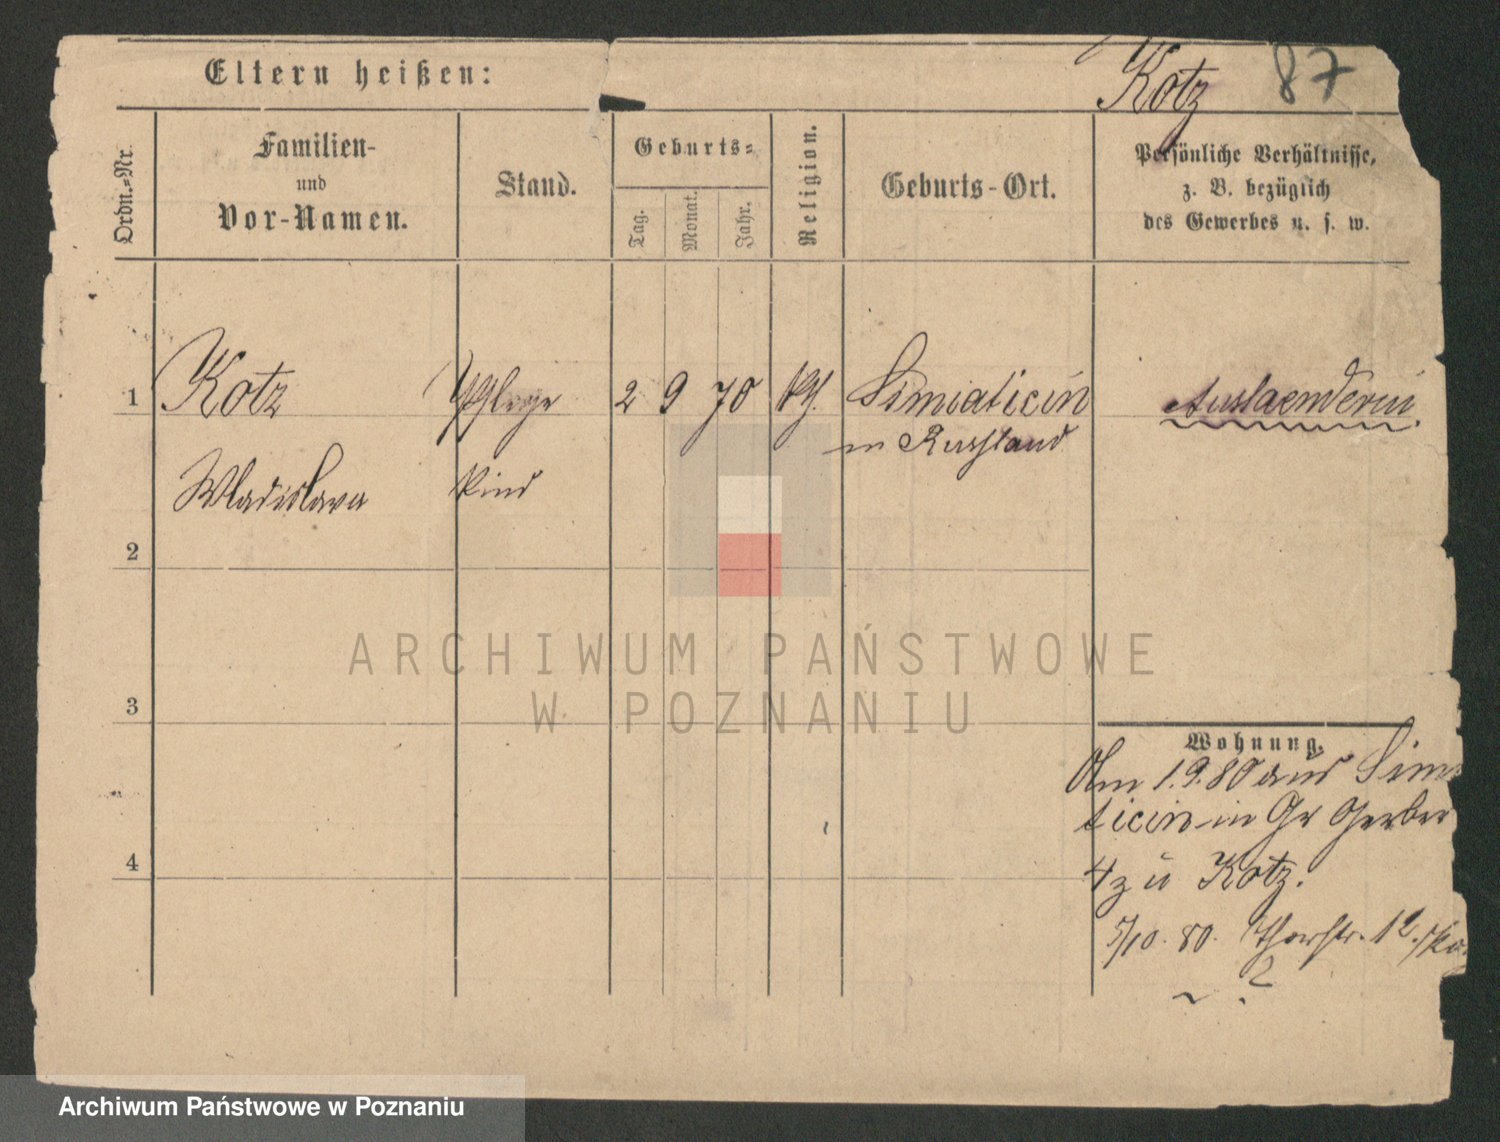 Kotz 87
Eltern heißen:
Ordn.-Nr.
Familien-
und
Vor-Namen.
Stand.
Geburts-
Tag.
Monat.
Jahr.
Religion.
Geburts-Ort.
Persönliche Verhältnisse,
z. B. bezüglich
des Gewerbes u. s. w.
1 Kotz Pflege 2 9 70 Simiaticin Auslaenderin
in Russland
Wladislava Kind
2
3
4
Wohnung.
Am 1.9.80 aus Simia
ticin in Gr Gerber
4 zu Kotz.
5/10. 80. Thorstr. 12.
?
ARCHIWUM PAŃSTWOWE
W POZNANIU
Archiwum Państwowe w Poznaniu